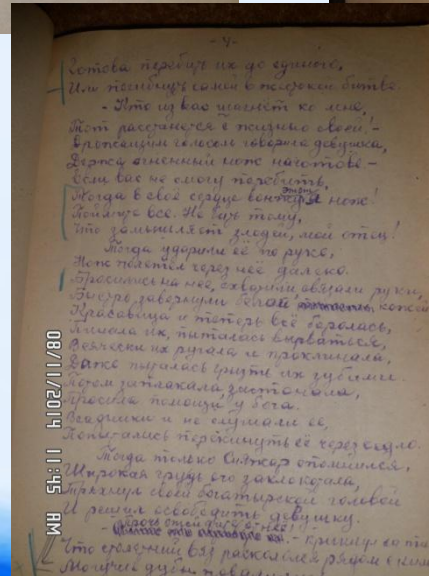 - 4 -
Готова перебить их до единого,
Или погибнуть самой в жестокой битве.
- Кто из вас шагнёт ко мне,
Тот расстанется с жизнью своей! -
Дрожащим голосом говорила девушка,
Держа огненный нож наготове -
Если вас не смогу перебить,
Тогда в своё сердце вонжу этот нож!
Поймите все. Не быть тому,
Что замышляет злодей, мой отец!
Тогда ударили её по руке,
Нож полетел через неё далеко.
Бросились на неё, схватили связали руки,
Быстро завернули белой кожей
Красавица и теперь всё боролась,
Пинала их, пыталась вырваться,
Всячески их ругала и проклинала,
Даже пыталась грызть их зубами.
Потом заплакала застонала,
Просила помощи у бога.
Всадники и не слушали её,
Попытались перекинуть её через седло.
Тогда только опомнился,
Широкая грудь его заклокотала,
Тряхнул своей богатырской головой
И решил освободить девушку.
- крикнул
Что столетний вяз раскололся рядом с ним
Могучие дубы
08/11/2014 11:45 AM